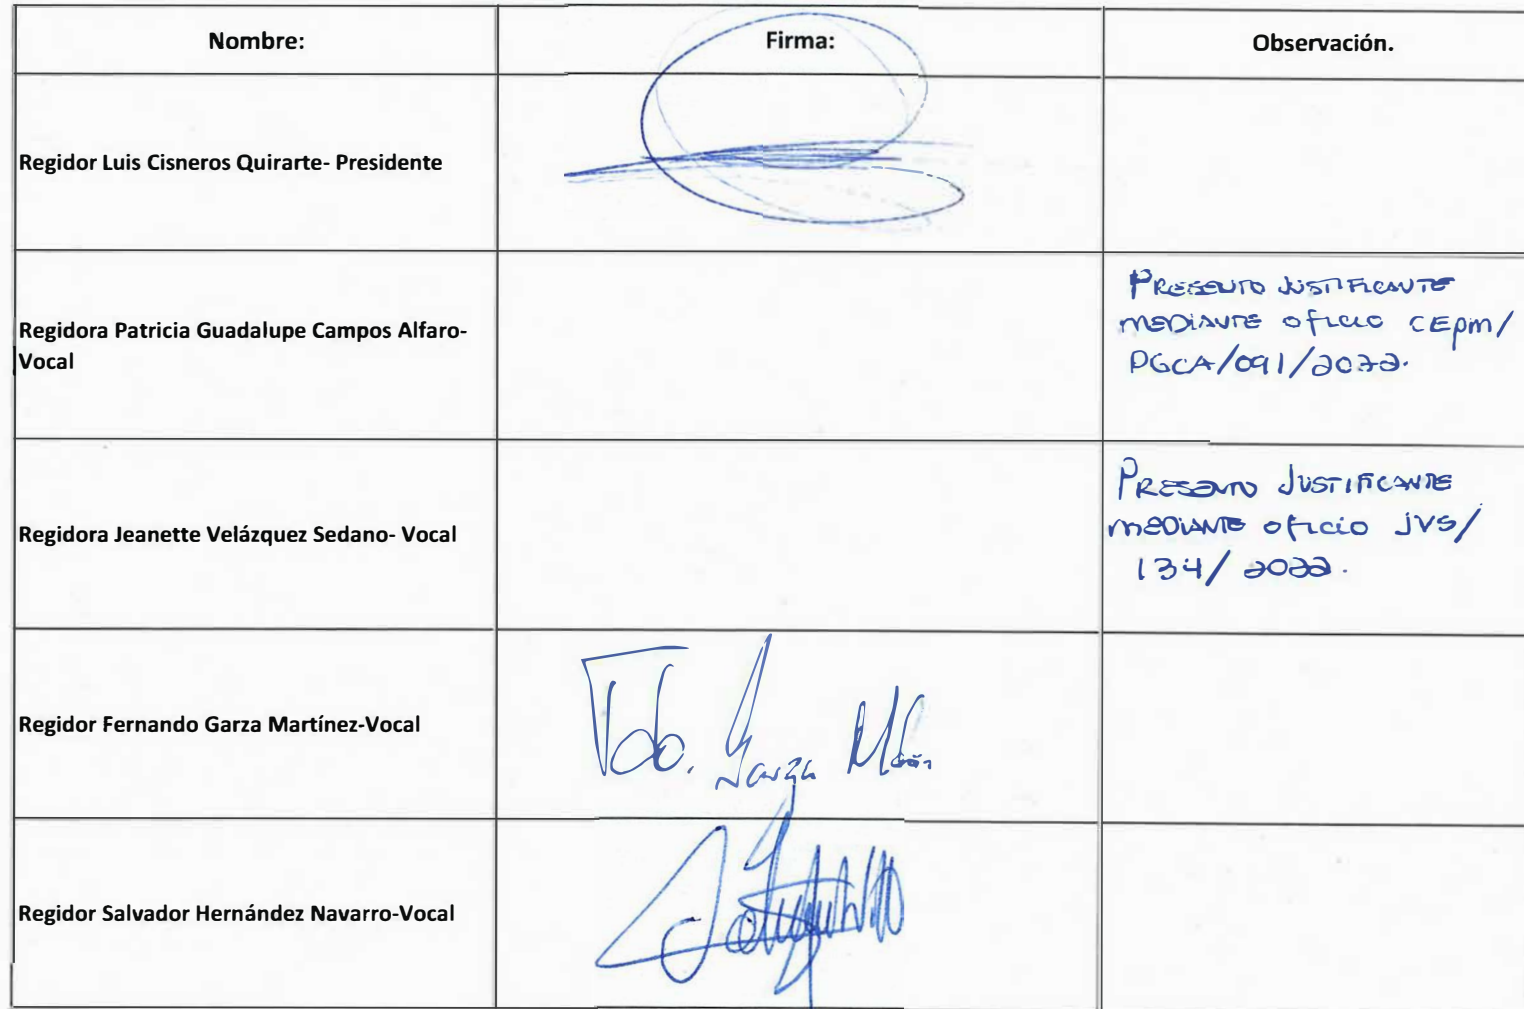 Nombre:
Firma:
Observación.
Regidor Luis Cisneros Quirarte- Presidente
Regidora Patricia Guadalupe Campos Alfaro-
Vocal
PRESENTO JUSTIFICANTE
MEDIANTE OFICIO CEPM/
PGCA/091/2022.
Regidora Jeanette Velázquez Sedano- Vocal
PRESENTO JUSTIFICANTE
MEDIANTE OFICIO JVS/
134/2022.
Regidor Fernando Garza Martínez-Vocal
Fdo. Garza
Regidor Salvador Hernández Navarro-Vocal